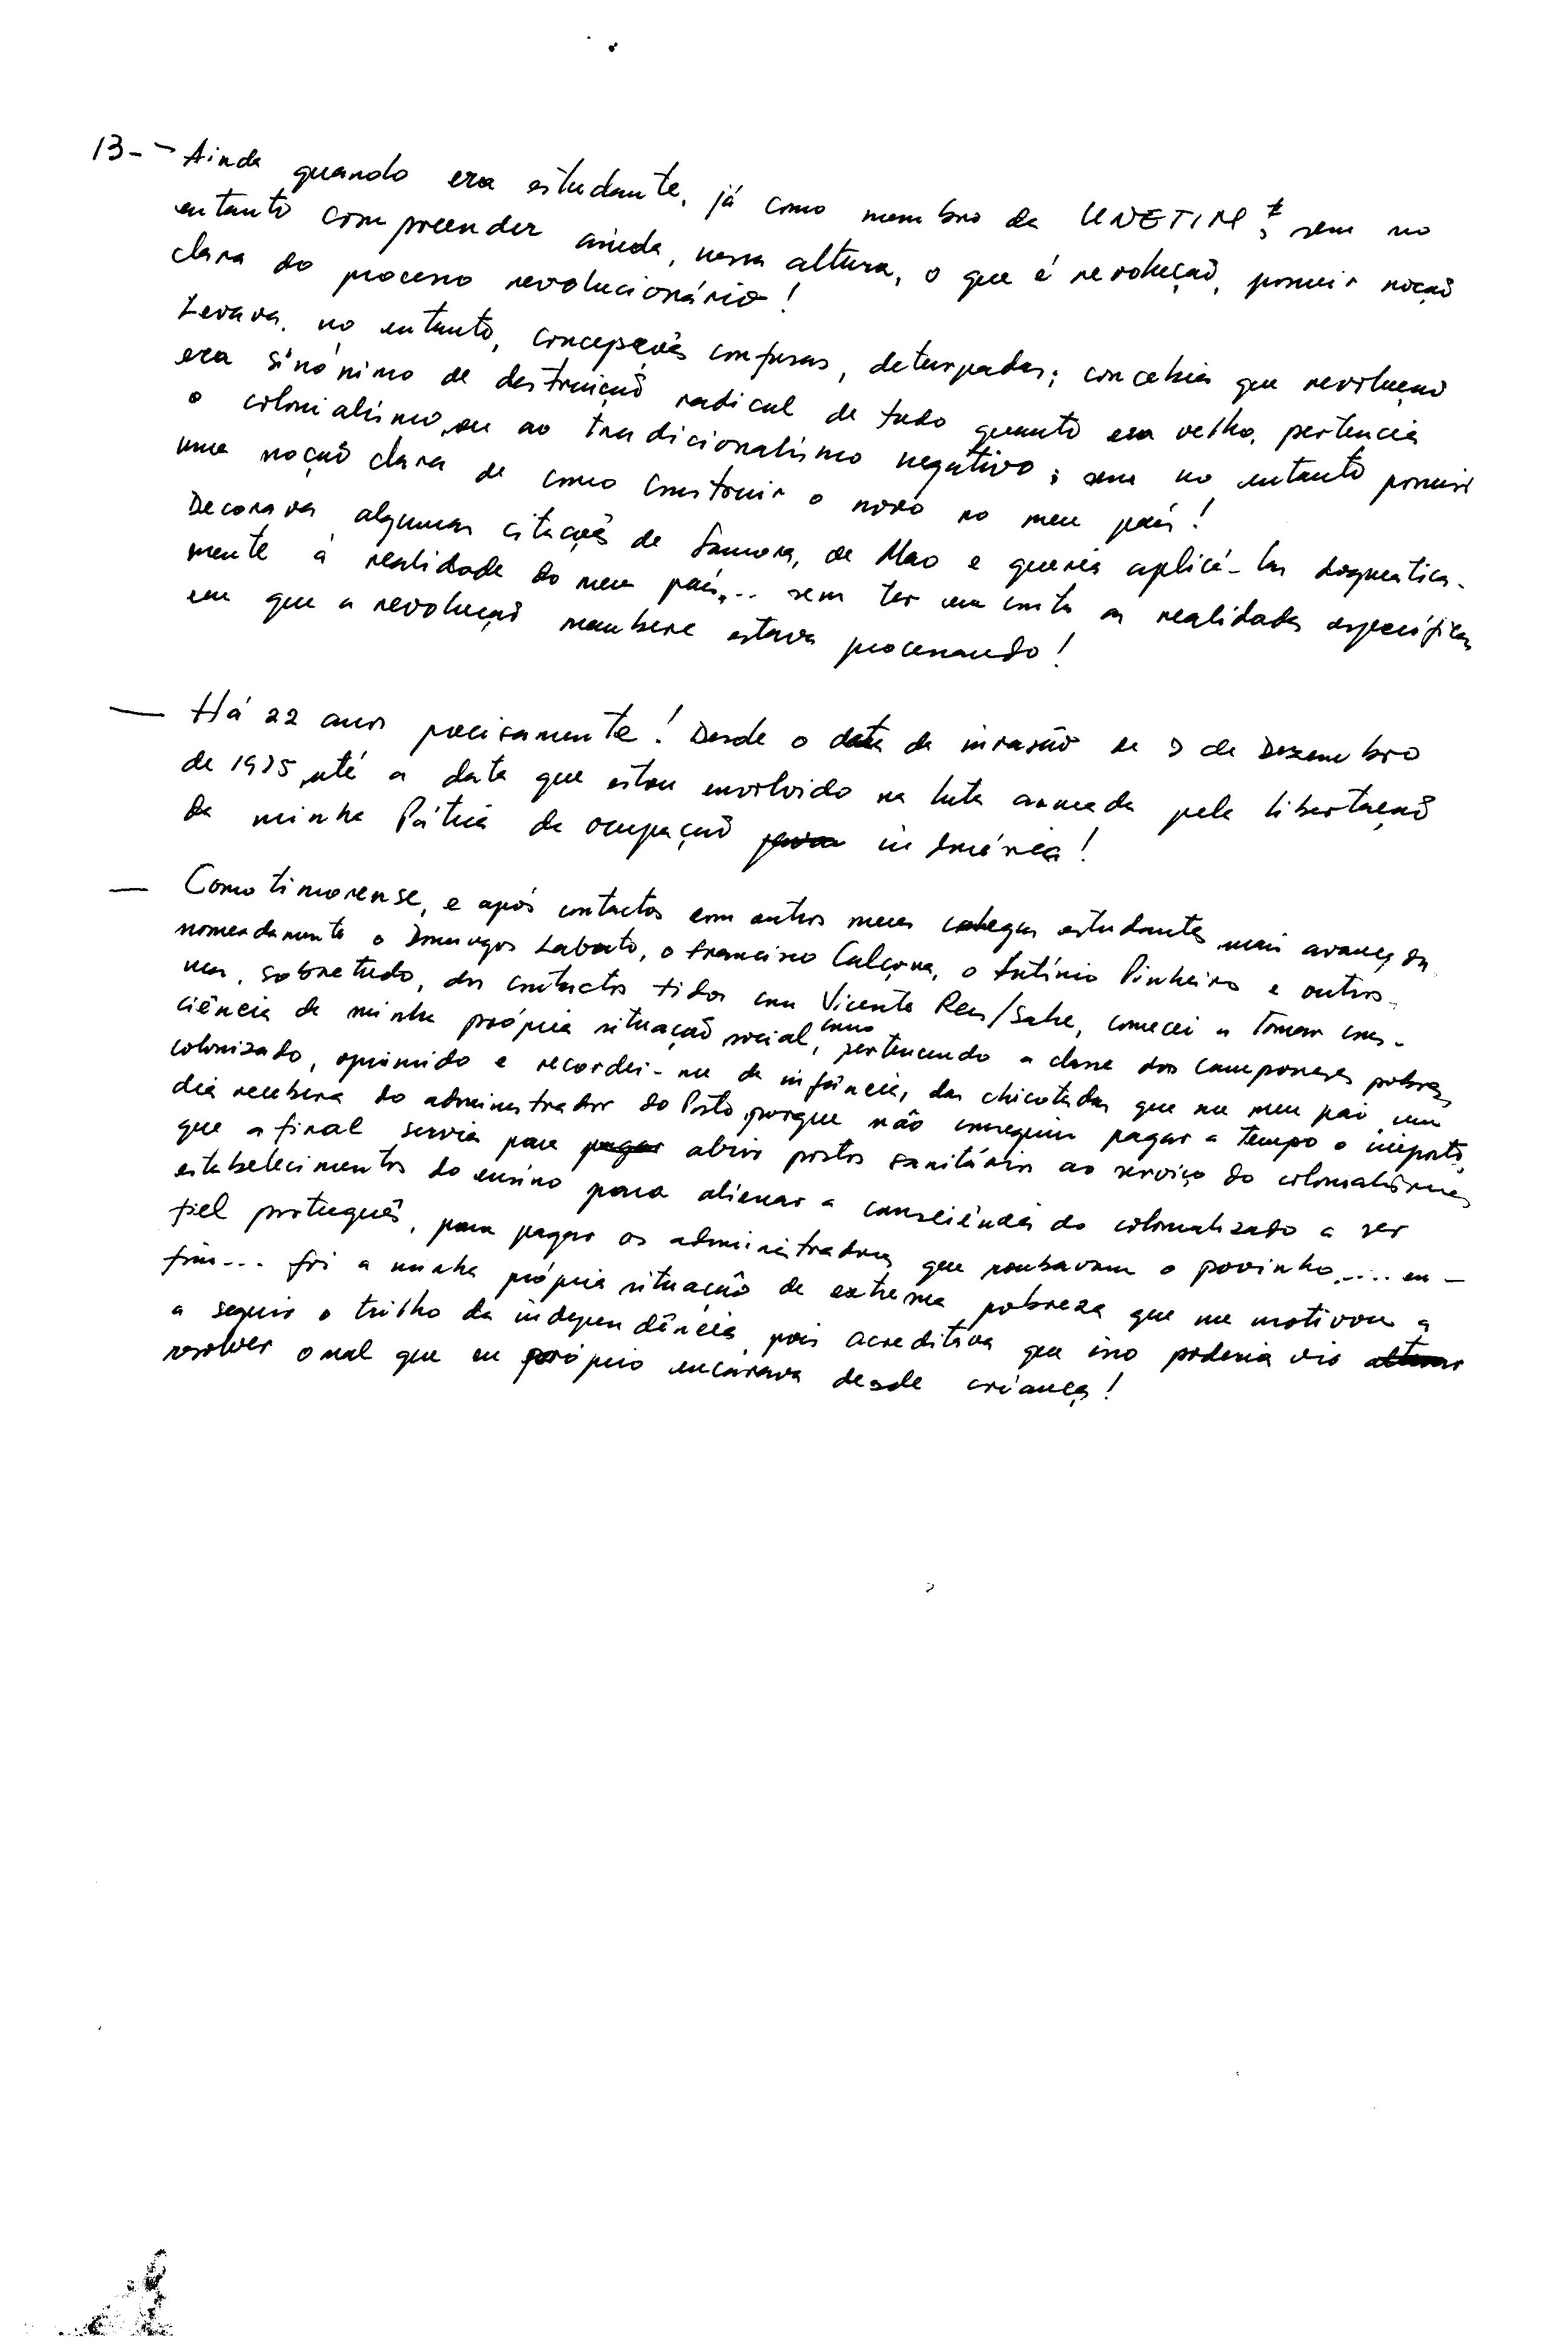 13- - Ainda quando era estudante, já como membro da UNETIM; sem no
entanto compreender ainda, nessa altura, o que é revolução, possuir noção
clara do processo revolucionário!
Levava, no entanto, concepções confusas, deturpadas; concebia que revolução
era sinónimo de destruição radical de tudo quanto era velho, pertencia
o colonialismo, ou ao tradicionalismo negativo; sem no entanto possuir
uma noção clara de como construir o novo no meu país!
Decorava algumas citações de Samora, de Mao e queria aplicá-las dogmatica-
mente à realidade do meu país,.. sem ter em conta as realidades específicas
em que a revolução maubere estava processando!
— Há 22 anos precisamente! Desde o data da invasão de 7 de Dezembro
de 1975, até a data que estou envolvido na luta armada pela libertação
da minha Pátria da ocupação indonésia!
— Como timorense, e após contactos com outros meus colegas estudantes mais avançados
nomeadamente o Domingos Lobato, o Francisco Calçona, o António Pinheiro e outros
mas, sobretudo, dos contactos tidos com Vicente Reis/Sahe, comecei a tomar cons-
ciência da minha própria situação social, como pertencendo a classe dos camponeses pobres
colonizado, oprimido e recordei-me da infância, das chicotadas que me meu pai um
dia recebera do administrador do Posto, porque não conseguiu pagar a tempo o imposto,
que afinal servia para abrir postos sanitários ao serviço do colonialismo,
estabelecimentos do ensino para alienar a consciência do colonializado a ser
fiel português, para pagar os administradores que roubavam o povinho..... en-
fim... foi a minha própria situação de extrema pobreza que me motivou a
a seguir o trilho da independência, pois acreditava que isso poderia vir
resolver o mal que eu próprio encarava desde criança!